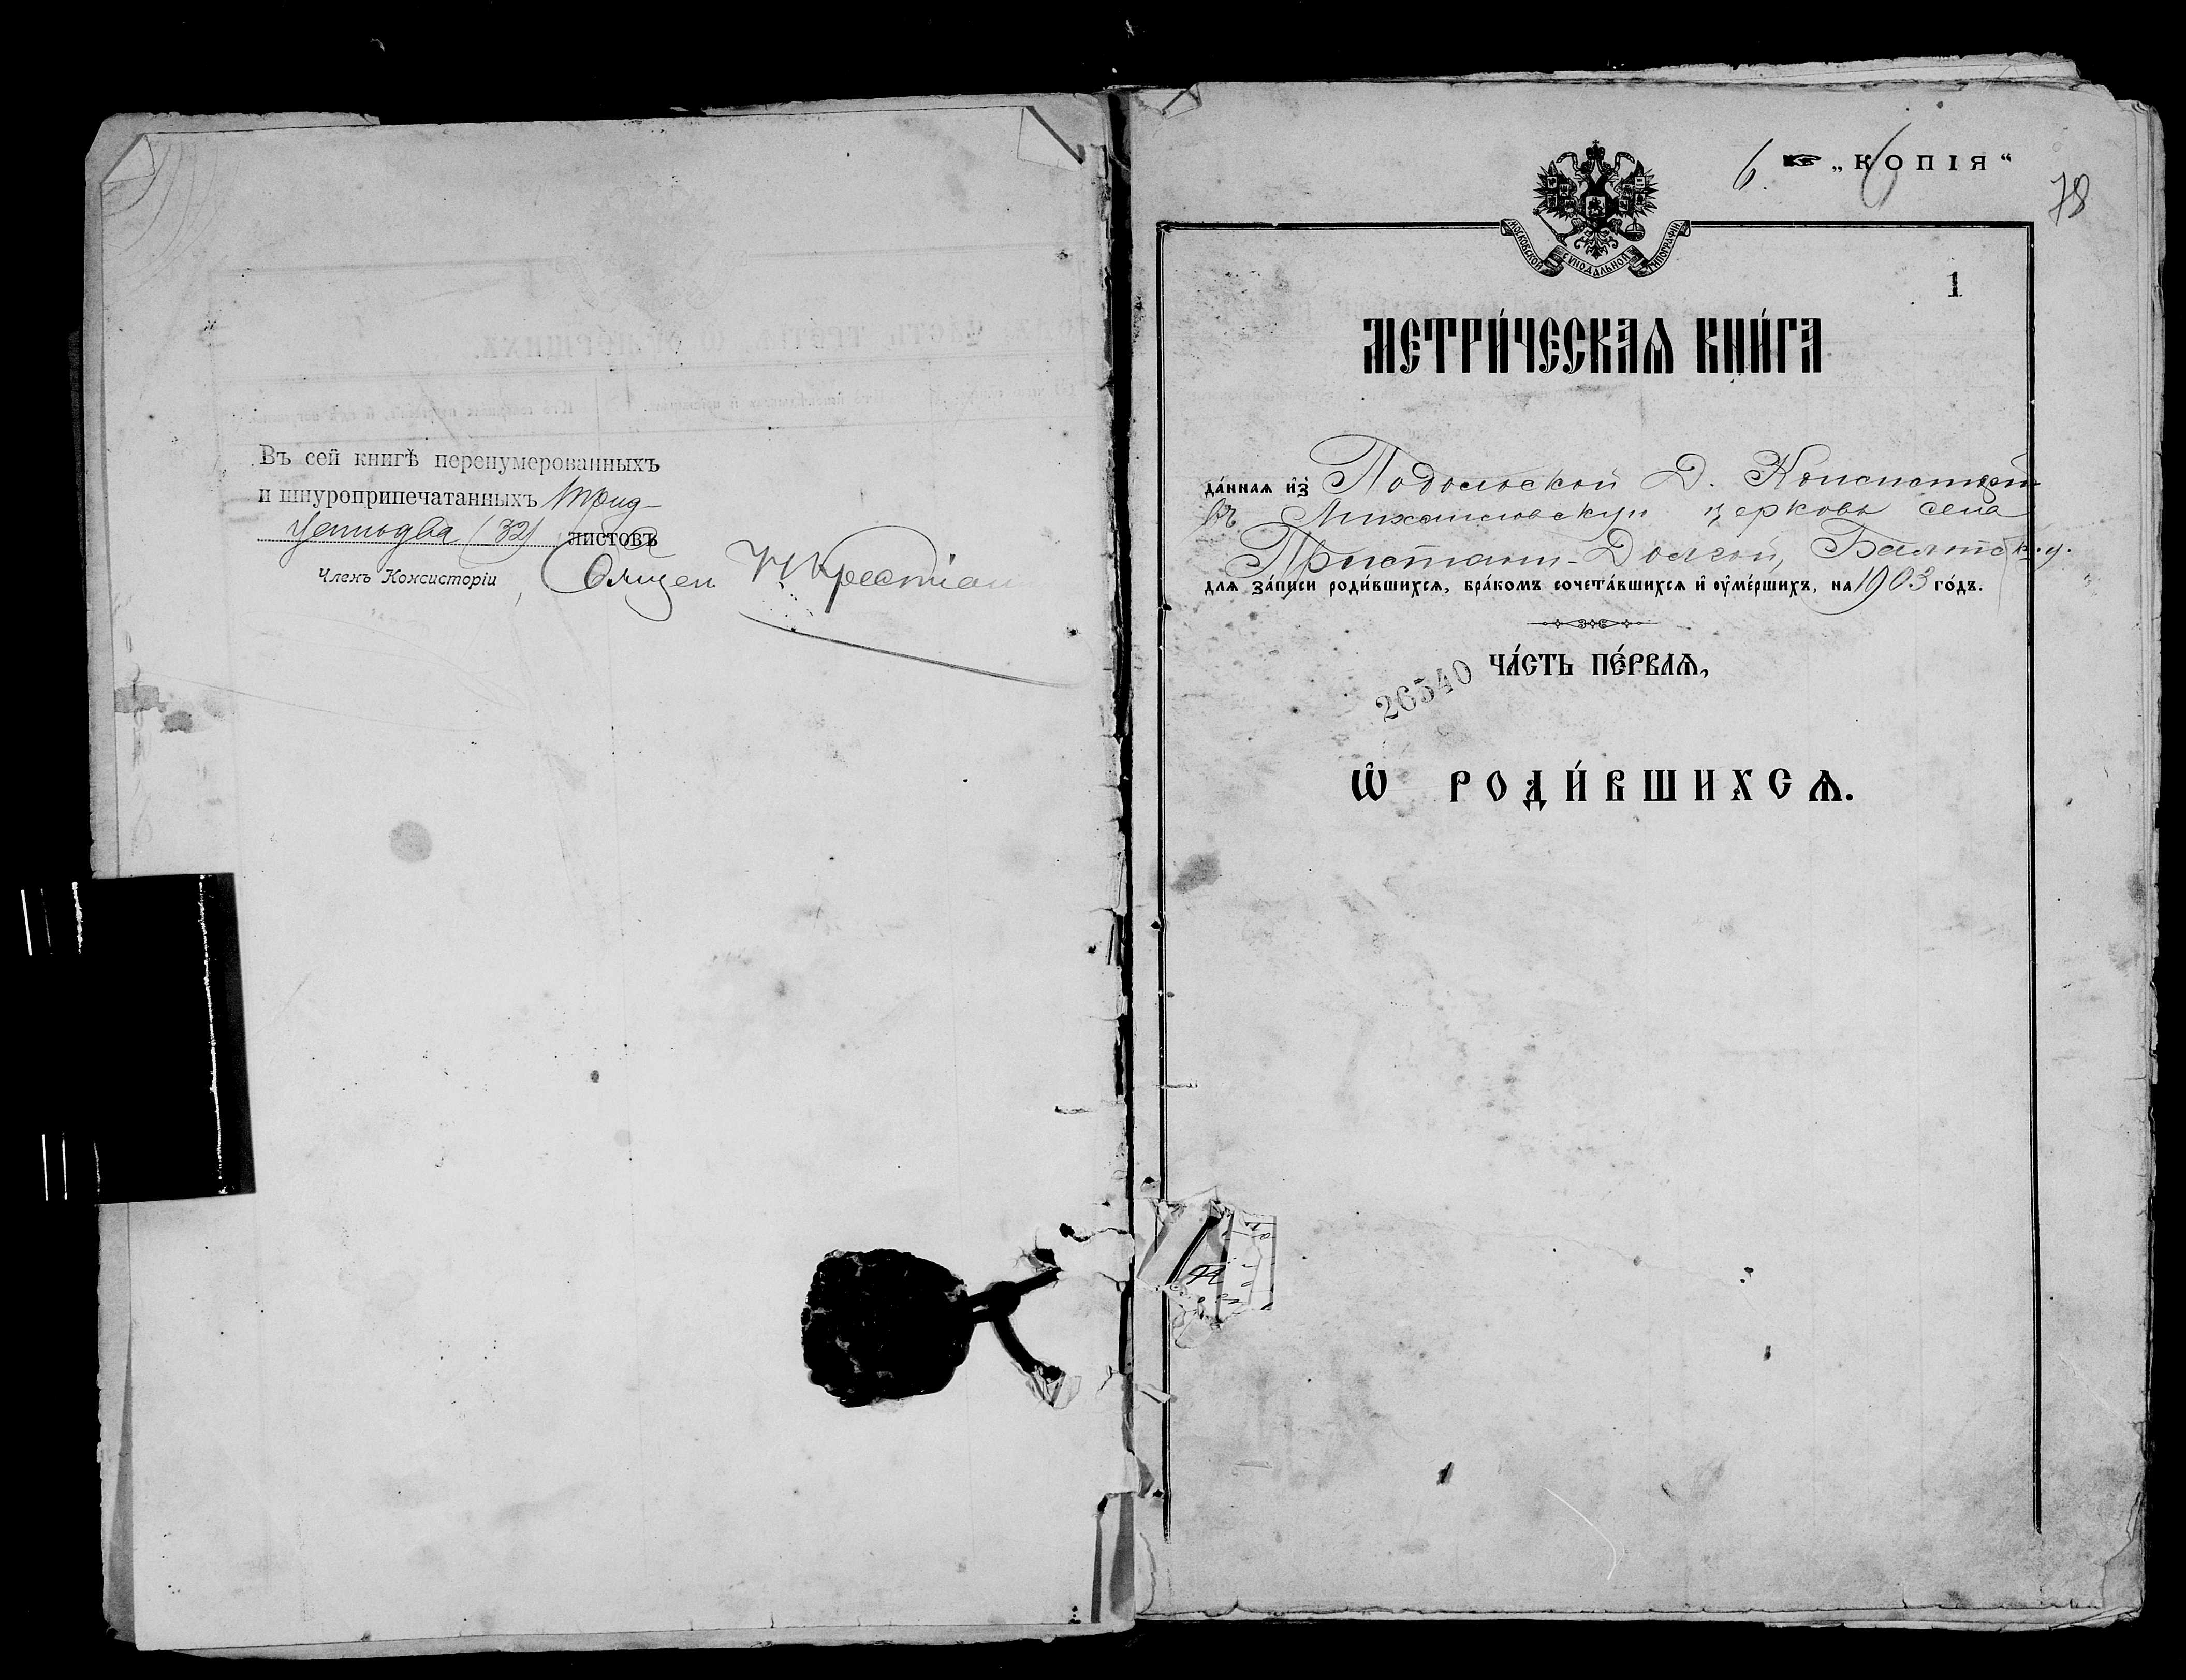 Въ сей книгѣ перенумерованныхъ
и шнуроприпечатанныхъ Трид-
цатьдва (32) листовъ
Членъ Консисторіи, Священ Крестіан
6. 6
☞ „КОПІЯ“
78
МОСКОВСКОЙ СѴНОДАЛЬНОЙ ТИПОГРАФІИ
1
МЕТРИ́ЧЕСКАѦ КНИ́ГА
да́ннаѧ и҆зъ Подольской Д. Консисторіи
въ Михайловскую церковь села
Пристани-Долгой, Балтск. у.
длѧ за́писи роди́вшихсѧ, бра́комъ сочета́вшихсѧ и҆ ѹ҆ме́ршихъ, на 1903 го́дъ.
ЧА́СТЬ ПЕ́РВАѦ,
26540
Ѽ РОДИ́ВШИХСѦ.